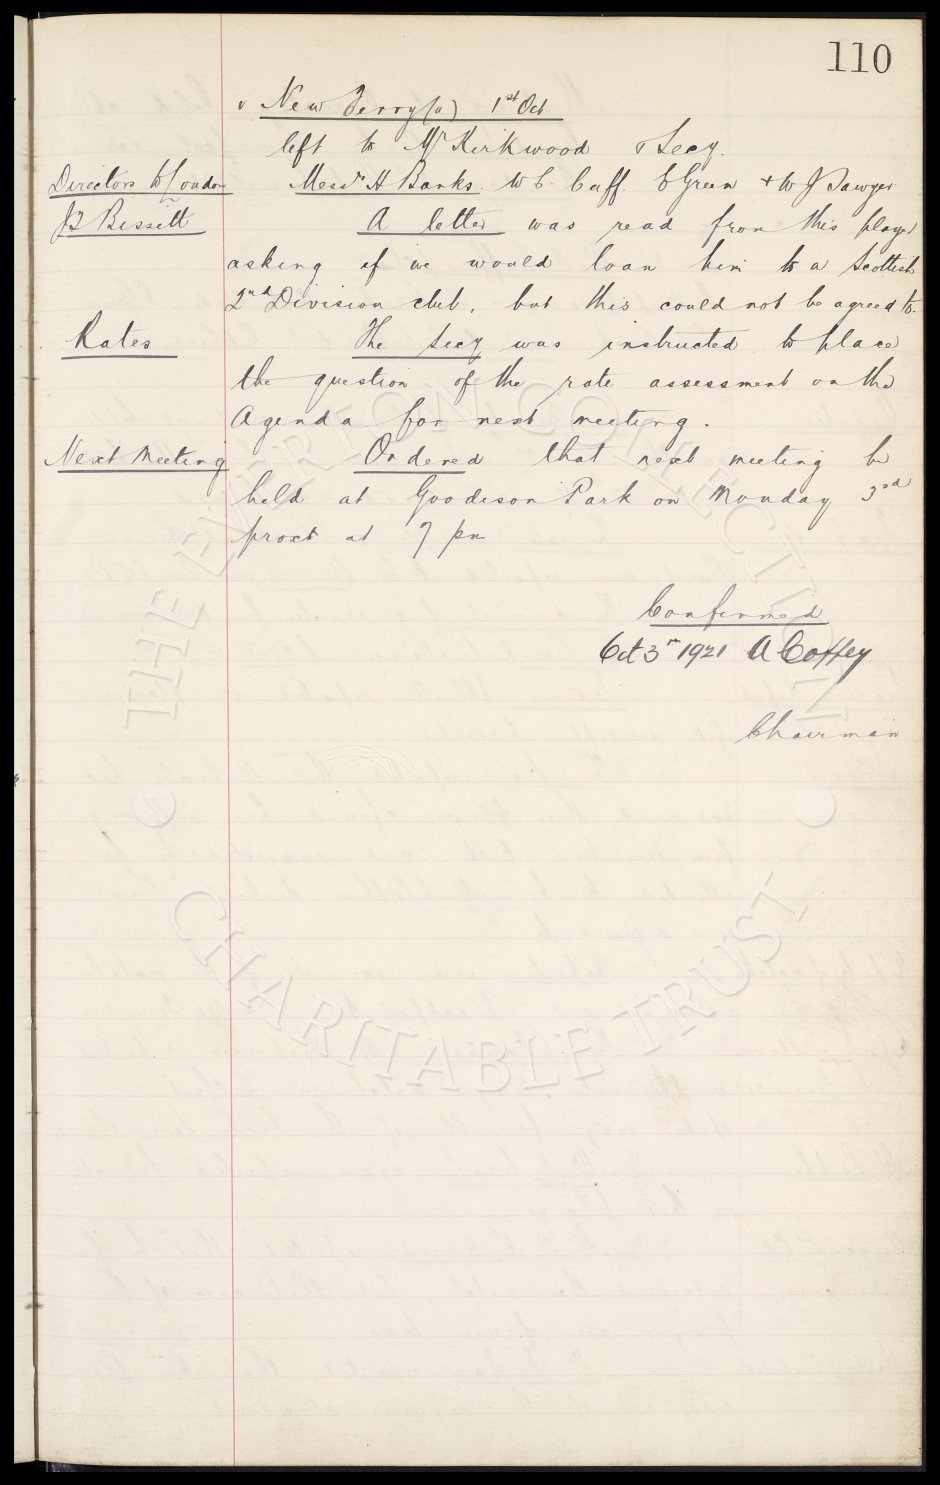 110
v New Ferry (a) 1st Oct
left to Mr Kirkwood & Secy.
Directors to London Messrs H Banks. W C. Cuff. E Green + W J Sawyer
J Bissett A letter was read from this player
asking if we would loan him to a Scottish
2nd Division club, but this could not be agreed to.
Rates The Secy was instructed to place
the question of the rate assessment on the
Agenda for next meeting.
Next Meeting Ordered that next meeting be
held at Goodison Park on Monday 3rd
proxt at 7 pm
Confirmed
Oct 3rd 1921 A Coffey
Chairman
THE EVERTON COLLECTION
CHARITABLE TRUST